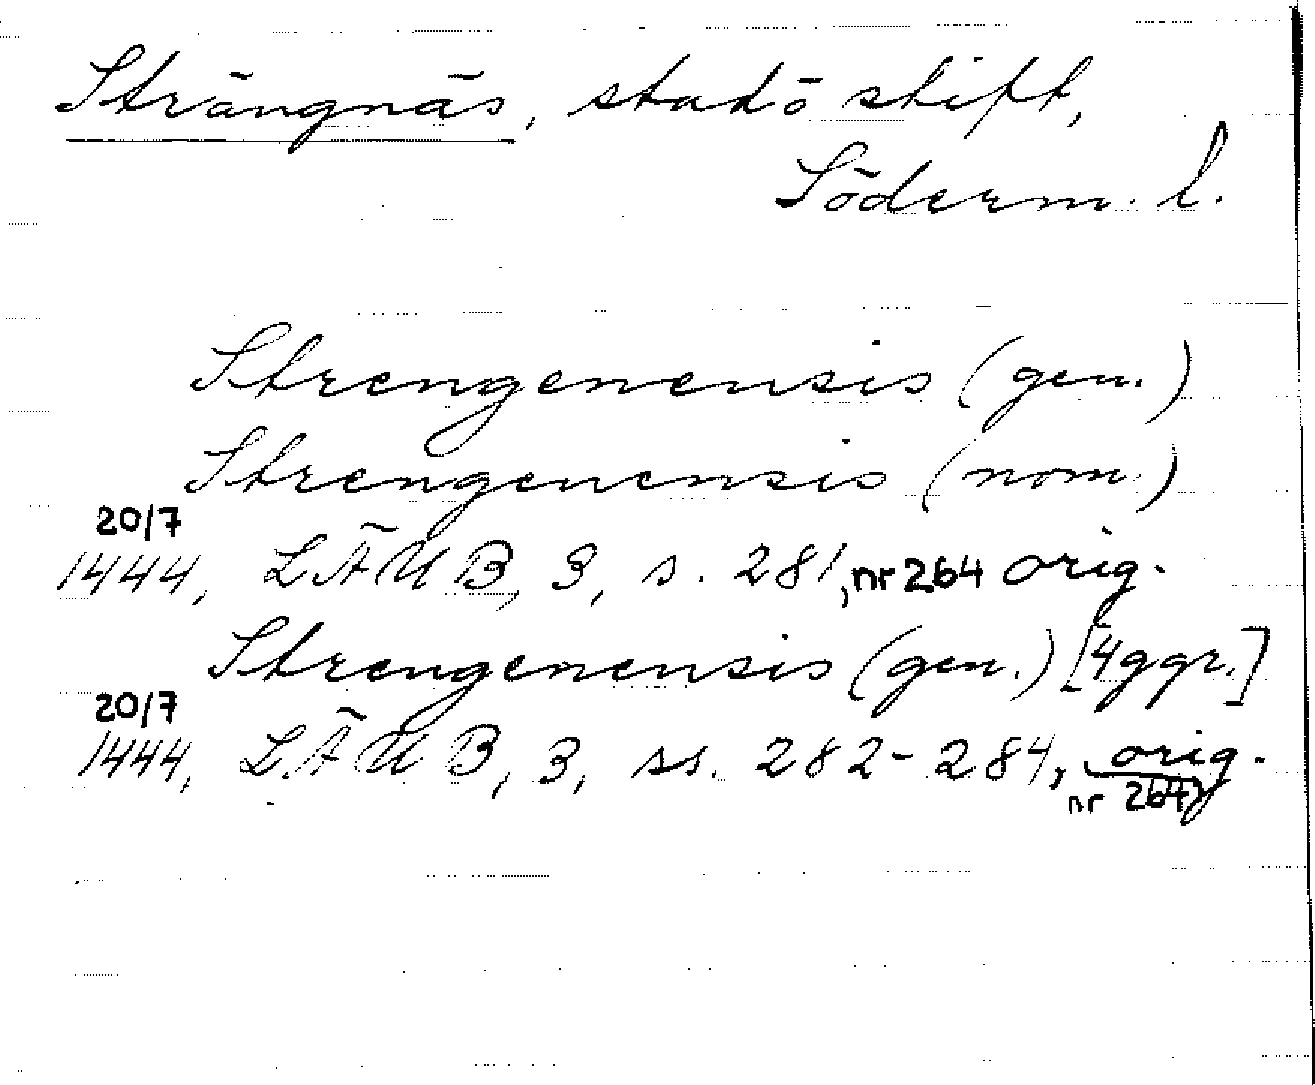 Strängnäs, stad o stift,
Söderm. l.
Strengenensis (gen.)
Strengenensis (nom.)
20/7
1444, LÄUB, 3, s. 281, nr 264 orig.
Strengenensis (gen.) [4 ggr.]
20/7
1444, LÄUB, 3, ss. 282-284, orig.
nr 264